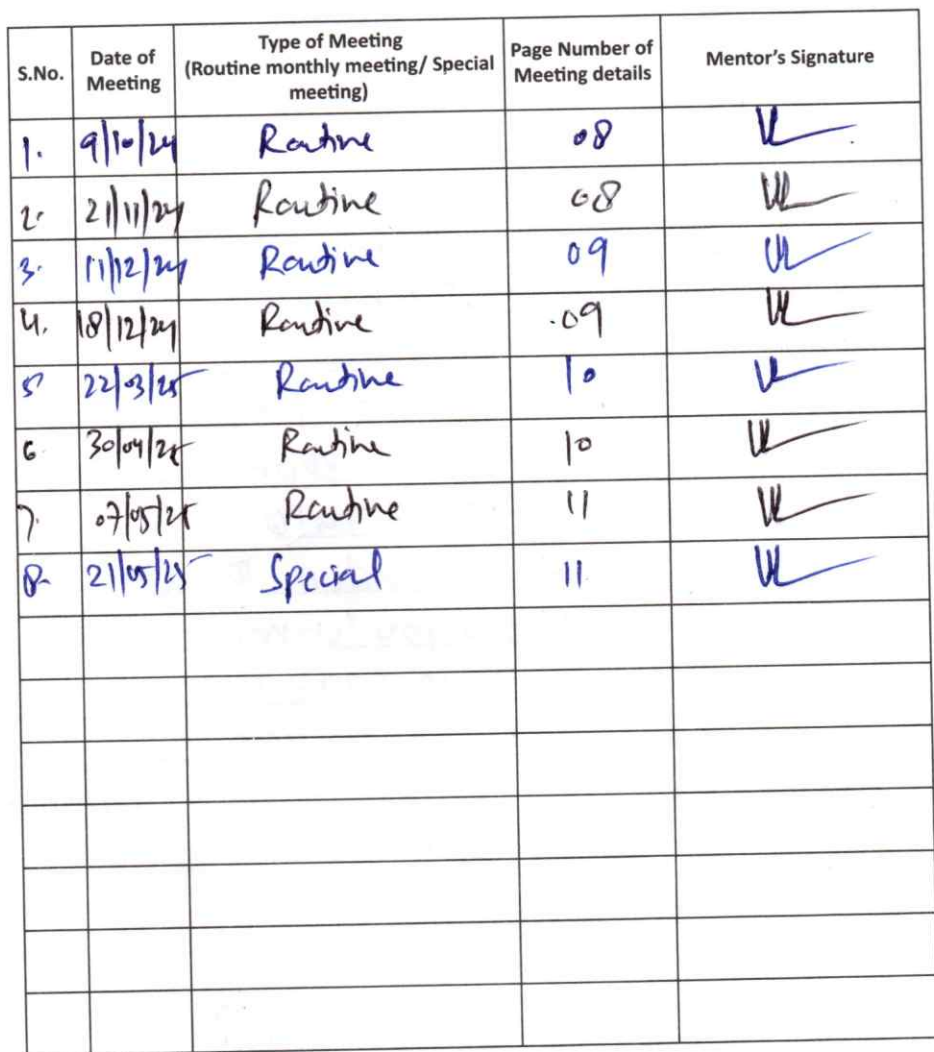 S.No. Date of Meeting Type of Meeting (Routine monthly meeting/ Special meeting) Page Number of Meeting details Mentor's Signature
1. 9/10/24 Routine 08
2. 21/11/24 Routine 08
3. 11/12/24 Routine 09
4. 18/12/24 Routine 09
5 22/03/25 Routine 10
6. 30/04/25 Routine 10
7. 07/05/25 Routine 11
8. 21/05/25 Special 11